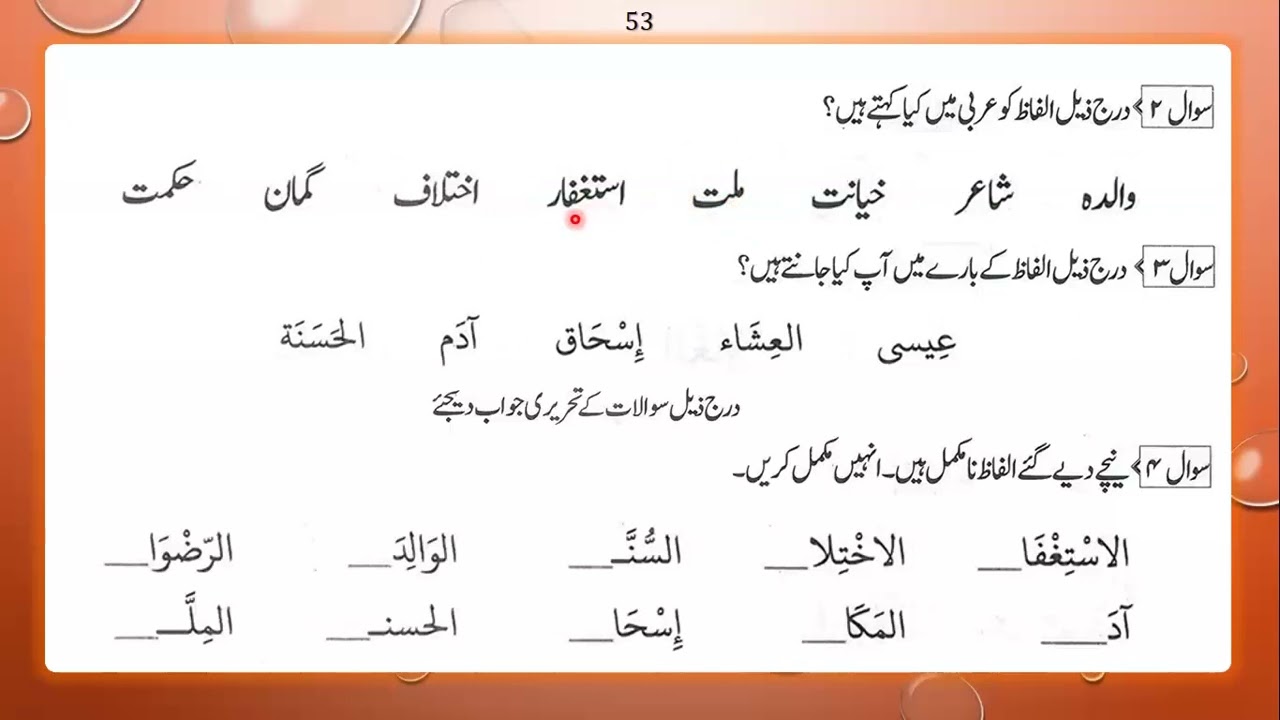 53
سوال ۲ درج ذیل الفاظ کو عربی میں کیا کہتے ہیں؟
والدہ شاعر خیانت ملت استغفار اختلاف گمان حکمت
سوال ۳ درج ذیل الفاظ کے بارے میں آپ کیا جانتے ہیں؟
عِيسى العِشَاء إِسْحَاق آدَم الحَسَنَة
درج ذیل سوالات کے تحریری جواب دیجئے
سوال ۴ نیچے دیے گئے الفاظ نامکمل ہیں۔ انہیں مکمل کریں۔
الاسْتِغْفَا___ الاخْتِلا___ السُّنَّـ___ الوَالِدَ___ الرِّضْوَا___
آدَ____ المَكَا___ إِسْحَا___ الحسنـ___ المِلَّـ___